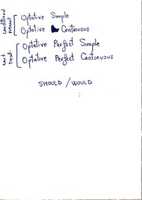 Optative Simple
Optative Continuous
Optative Perfect Simple
Optative Perfect Continuous
SHOULD / WOULD